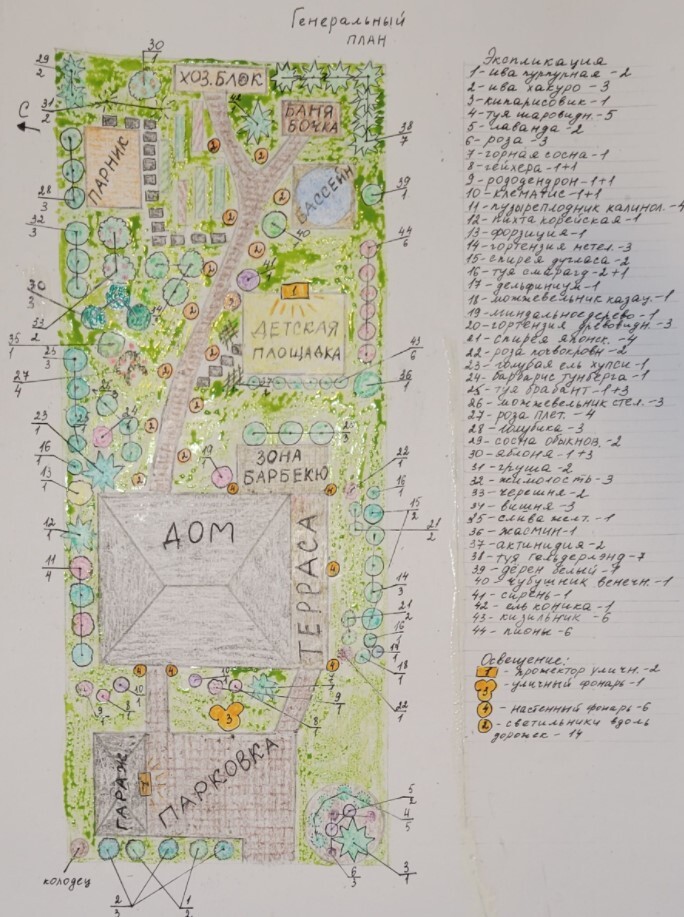 Генеральный
план
29
2
30
1
31
2
С
ХОЗ.БЛОК
БАНЯ
БОЧКА
ПАРНИК
БАССЕЙН
38
7
39
1
28
3
32
3
40
44
6
41
1
30
3
33
2
34
35
1
25
3
27
4
1
ДЕТСКАЯ
ПЛОЩАДКА
43
6
37
2
36
1
26
3
24
23
1
25
16
1
13
1
19
1
25
3
ЗОНА
БАРБЕКЮ
22
1
16
1
15
2
21
2
12
1
11
4
ДОМ
ТЕРРАСА
14
3
21
2
16
1
17
1
18
1
22
1
9
1
8
1
10
1
10
7
1
9
1
8
1
3
ГАРАЖ
ПАРКОВКА
1
5
2
4
5
3
1
6
3
колодец
2
3
1
2
Экспликация
1-ива пурпурная -2
2-ива хакуро -3
3-кипарисовик-1
4-туя шаровидн.-5
5-лаванда-2
6-роза-3
7-горная сосна-1
8-гейхера-1+1
9-рододендрон-1+1
10-клематис-1+1
11-пузыреплодник калинол.-4
12-пихта корейская-1
13-форзиция-1
14-гортензия метел.-3
15-спирея дугласа-2
16-туя смарагд-2+1
17-дельфиниум-1
18-можжевельник казац.-1
19-миндальное дерево-1
20-гортензия древовидн.-3
21-спирея японск.-4
22-роза почвокровн-2
23-голубая ель хупси-1
24-барбарис тунберга-1
25-туя брабант-1+3
26-можжевельник стел.-3
27-роза плет.-4
28-голубика-3
29-сосна обыкнов.-2
30-яблоня-1+3
31-груша-2
32-жимолость-3
33-черешня-2
34-вишня-3
35-слива желт.-1
36-жасмин-1
37-актинидия-2
38-туя гольдерлэнд-7
39-дерен белый-1
40-чубушник венечн.-1
41-сирень-1
42-ель коника-1
43-кизильник-6
44-пионы-6
Освещение:
1 - прожектор уличн.-2
3 - уличный фонарь-1
4 - настенный фонарь-6
2 - светильники вдоль
дорожек-14